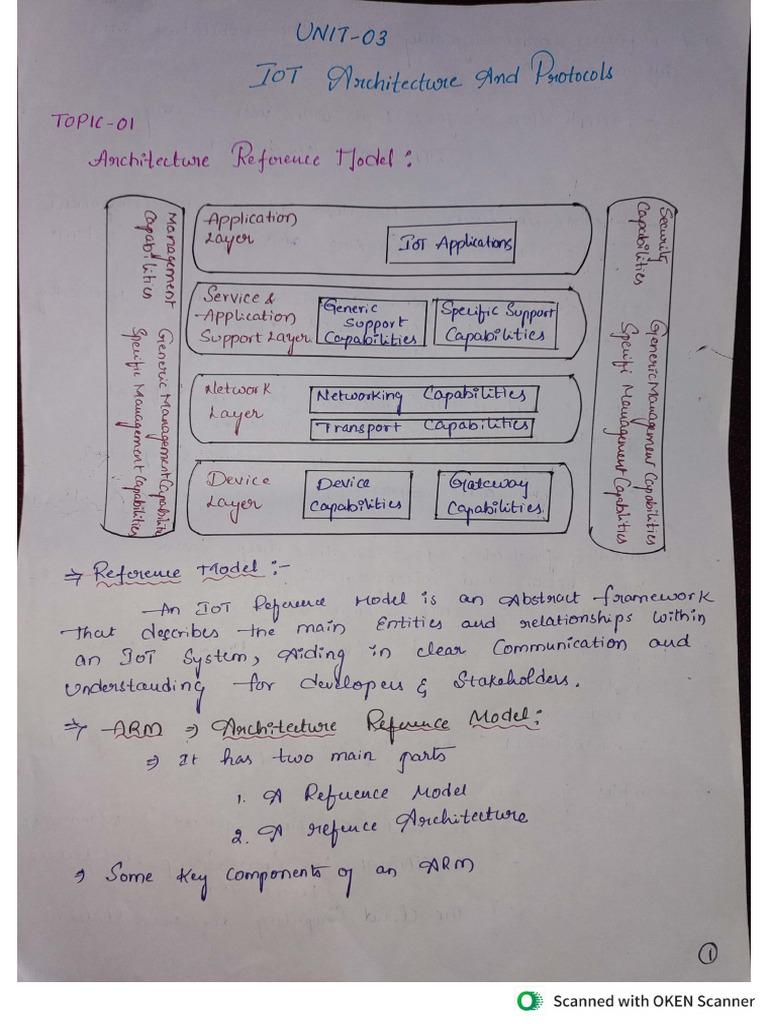 UNIT-03
IOT Architecture And Protocols
TOPIC-01
Architecture Reference Model:
Management
Capabilities
Generic Management Capabilitie
Specific Management Capabilities
Application
Layer
IoT Applications
Service &
Application
Support Layer
Generic
Support
Capabilities
Specific Support
Capabilities
Network
Layer
Networking Capabilities
Transport Capabilities
Device
Layer
Device
Capabilities
Gateway
Capabilities
Security
Capabilities
Generic Management Capabilities
Specifi Management Capabilities
⇒ Reference Model :-
An IoT Reference Model is an Abstract framework
that describes the main Entities and relationships within
an IoT System, Aiding in clear Communication and
Understanding for developers & Stakeholders.
⇒ ARM ⇒ Architecture Reference Model:
⇒ It has two main parts
1. A Reference Model
2. A refence Architecture
⇒ Some key components of an ARM
1
Scanned with OKEN Scanner